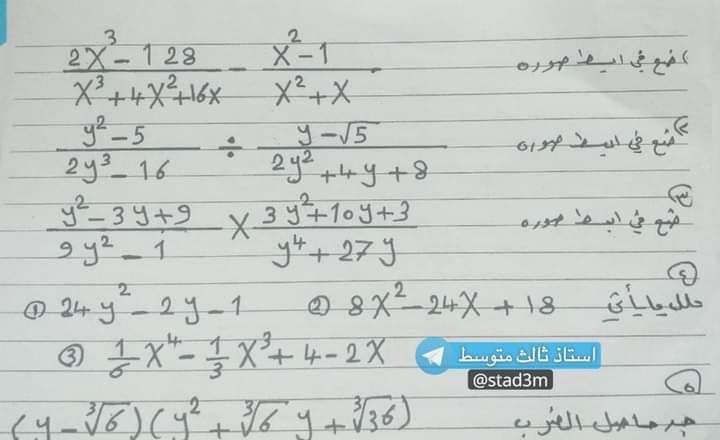 ١) ضع في ابسط صوره (2X³ - 128)/(X³ + 4X² + 16X) - (X² - 1)/(X² + X)
٢) ضع في ابسط صوره (y² - 5)/(2y³ - 16) ÷ (y - √5)/(2y² + 4y + 8)
٣) ضع في ابسط صوره (y² - 3y + 9)/(9y² - 1) × (3y² + 10y + 3)/(y⁴ + 27y)
٤) حلل ما يأتي ① 24y² - 2y - 1 ② 8X² - 24X + 18
③ 1/6 X⁴ - 1/3 X³ + 4 - 2X
استاذ ثالث متوسط
@stad3m
٥) جد حاصل الضرب (y - ∛6)(y² + ∛6 y + ∛36)